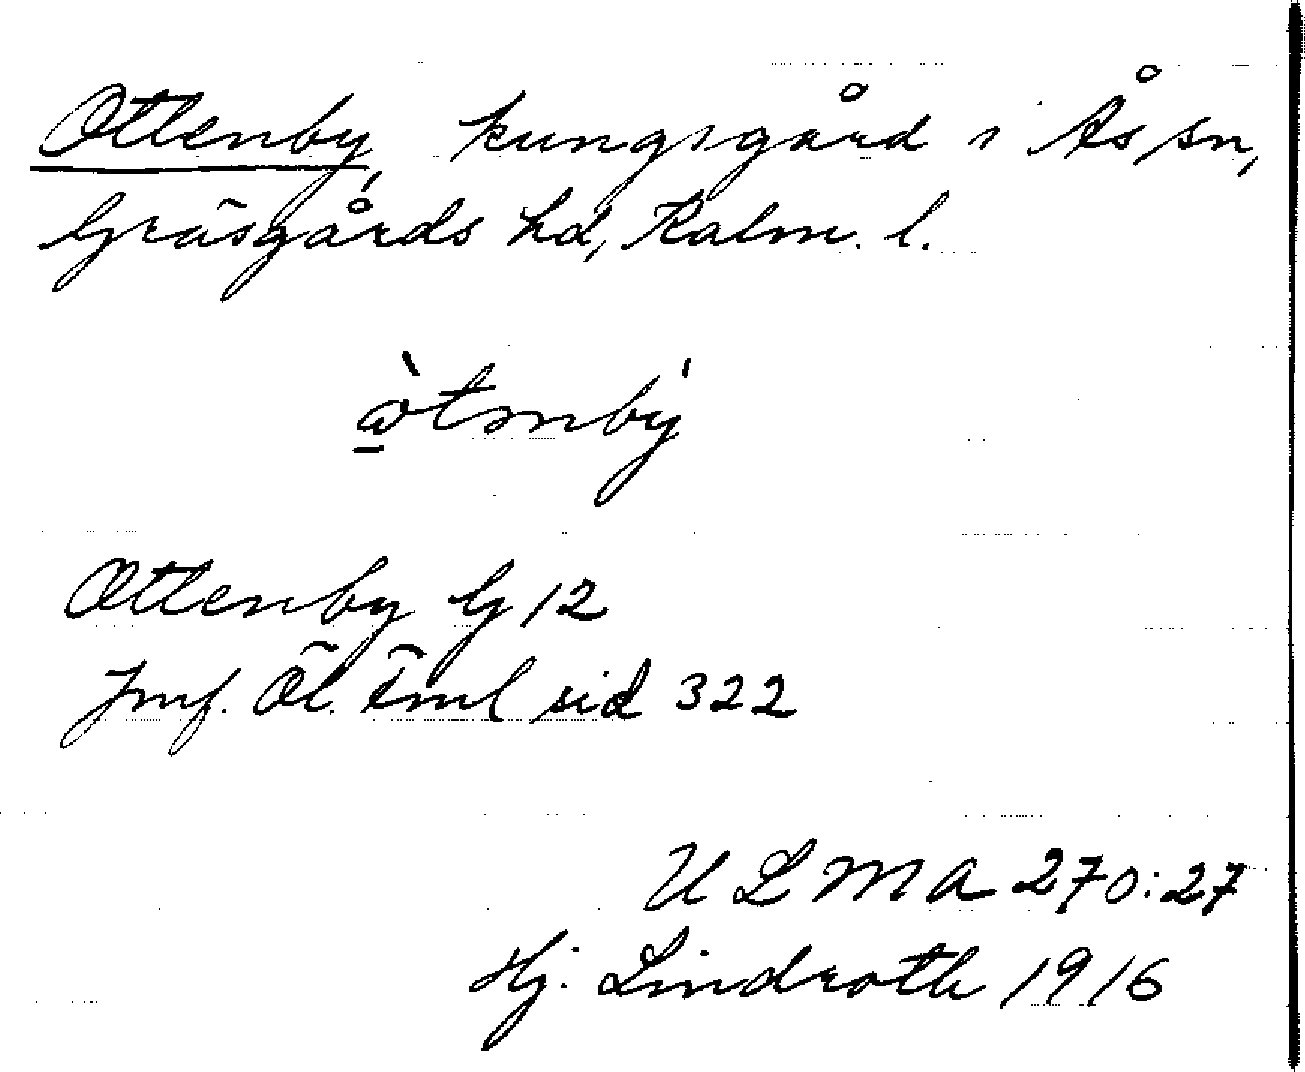 Ottenby, kungsgård i Ås sn,
Gräsgårds hd, Kalm. l.
Ottenby G 12
Jmf. Öl. Fml sid 322
ULMA 270:27
Hj. Lindroth 1916